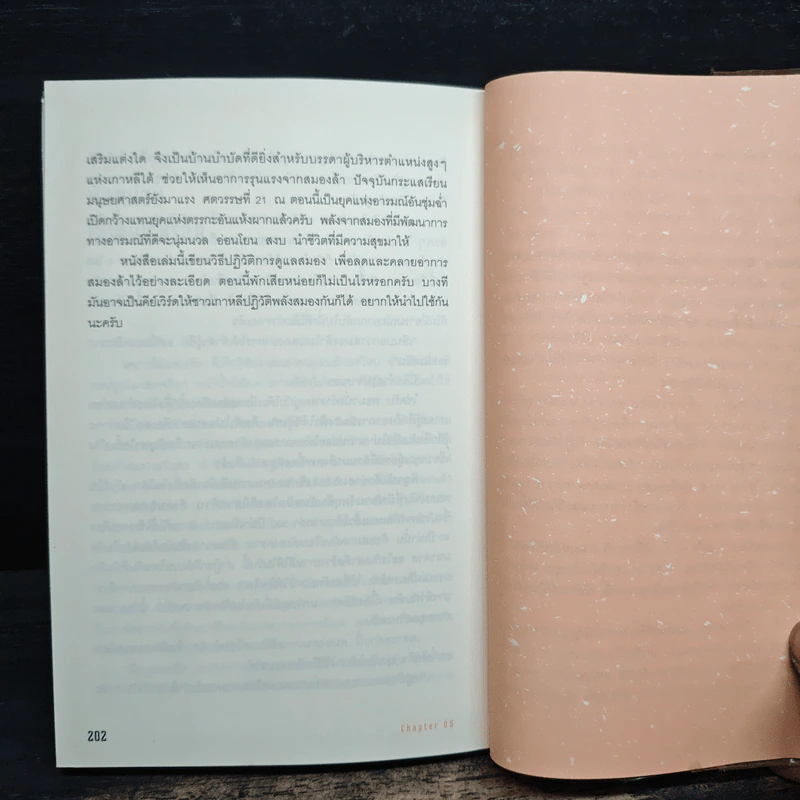 เสริมแต่งใด จึงเป็นบ้านบำบัดที่ดียิ่งสำหรับบรรดาผู้บริหารตำแหน่งสูงๆ
แห่งเกาหลีใต้ ช่วยให้เห็นอาการรุนแรงจากสมองล้า ปัจจุบันกระแสเรียน
มนุษยศาสตร์ยังมาแรง ศตวรรษที่ 21 ณ ตอนนี้เป็นยุคแห่งอารมณ์อันชุ่มฉ่ำ
เปิดกว้างแทนยุคแห่งตรรกะอันแห้งผากแล้วครับ พลังจากสมองที่มีพัฒนาการ
ทางอารมณ์ที่ดีจะนุ่มนวล อ่อนโยน สงบ นำชีวิตที่มีความสุขมาให้
หนังสือเล่มนี้เขียนวิธีปฏิวัติการดูแลสมอง เพื่อลดและคลายอาการ
สมองล้าไว้อย่างละเอียด ตอนนี้พักเสียหน่อยก็ไม่เป็นไรหรอกครับ บางที
มันอาจเป็นคีย์เวิร์ดให้ชาวเกาหลีปฏิวัติพลังสมองกันก็ได้ อยากให้นำไปใช้กัน
นะครับ
202
Chapter 05